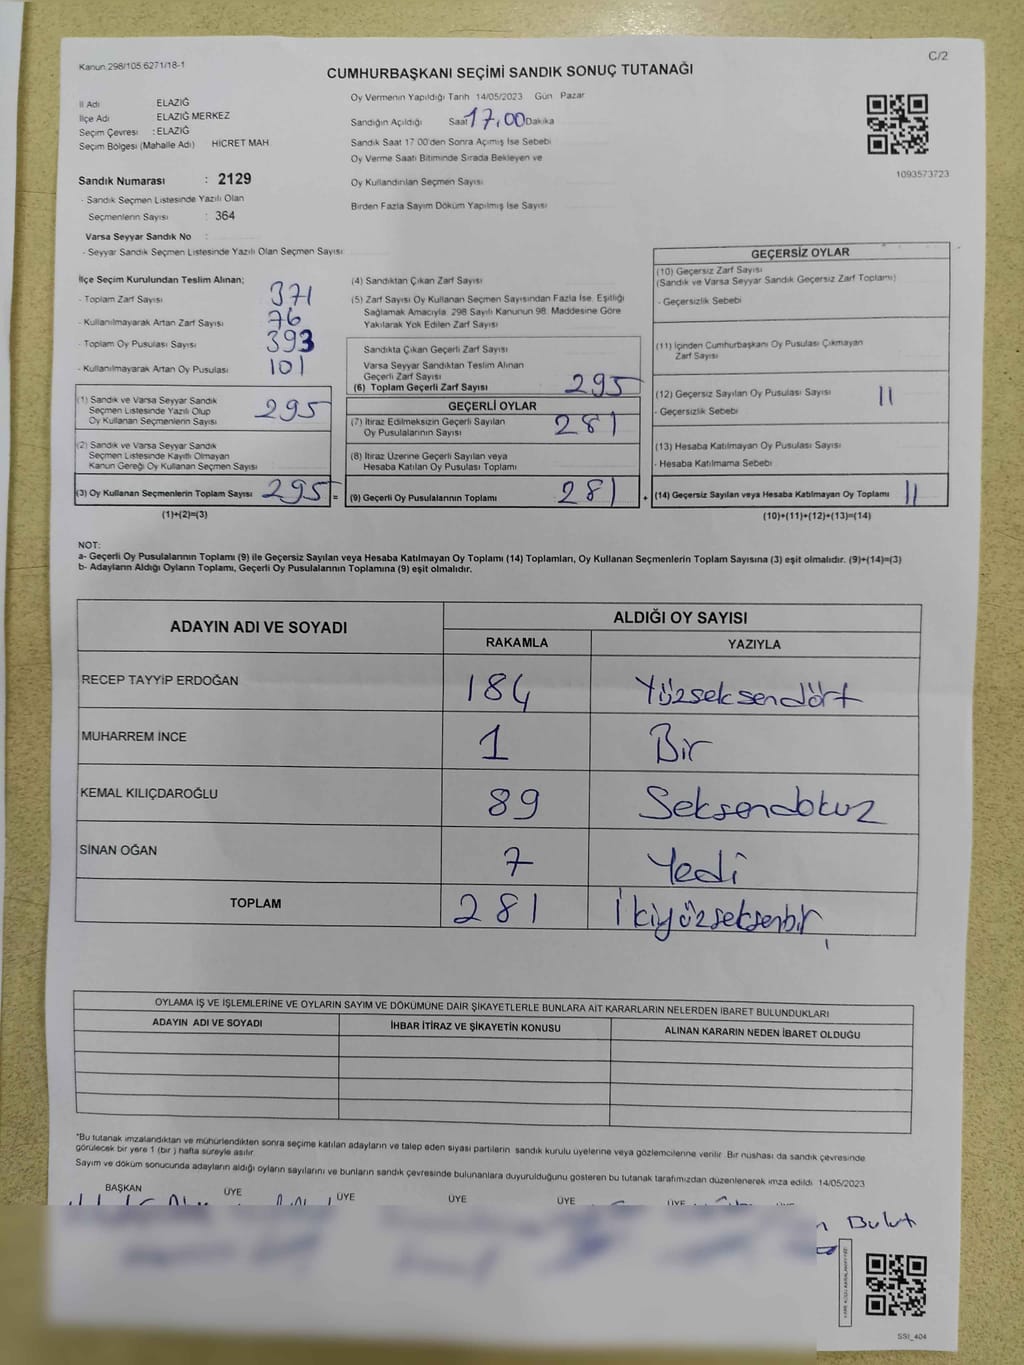 Kanun.298/105 6271/18-1
C/2
CUMHURBAŞKANI SEÇİMİ SANDIK SONUÇ TUTANAĞI
İl Adı ELAZIĞ
İlçe Adı ELAZIĞ MERKEZ
Seçim Çevresi : ELAZIĞ
Seçim Bölgesi (Mahalle Adı) HİCRET MAH.
Sandık Numarası : 2129
- Sandık Seçmen Listesinde Yazılı Olan
Seçmenlerin Sayısı : 364
Varsa Seyyar Sandık No :
- Seyyar Sandık Seçmen Listesinde Yazılı Olan Seçmen Sayısı:
Oy Vermenin Yapıldığı Tarih 14/05/2023 Gün Pazar
Sandığın Açıldığı Saat 17,00 Dakika
Sandık Saat 17 00'den Sonra Açılmış İse Sebebi
Oy Verme Saati Bitiminde Sırada Bekleyen ve
Oy Kullandırılan Seçmen Sayısı
Birden Fazla Sayım Döküm Yapılmış İse Sayısı
1093573723
İlçe Seçim Kurulundan Teslim Alınan;
- Toplam Zarf Sayısı 371
- Kullanılmayarak Artan Zarf Sayısı 76
- Toplam Oy Pusulası Sayısı 393
- Kullanılmayarak Artan Oy Pusulası 101
(1) Sandık ve Varsa Seyyar Sandık
Seçmen Listesinde Yazılı Olup
Oy Kullanan Seçmenlerin Sayısı 295
(2) Sandık ve Varsa Seyyar Sandık
Seçmen Listesinde Kayıtlı Olmayan
Kanun Gereği Oy Kullanan Seçmen Sayısı
(3) Oy Kullanan Seçmenlerin Toplam Sayısı 295 =
(1)+(2)=(3)
(4) Sandıktan Çıkan Zarf Sayısı
(5) Zarf Sayısı Oy Kullanan Seçmen Sayısından Fazla İse, Eşitliği
Sağlamak Amacıyla, 298 Sayılı Kanunun 98. Maddesine Göre
Yakılarak Yok Edilen Zarf Sayısı
Sandıkta Çıkan Geçerli Zarf Sayısı
Varsa Seyyar Sandıktan Teslim Alınan
Geçerli Zarf Sayısı
(6) Toplam Geçerli Zarf Sayısı 295
GEÇERLİ OYLAR
(7) İtiraz Edilmeksizin Geçerli Sayılan
Oy Pusulalarının Sayısı 281
(8) İtiraz Üzerine Geçerli Sayılan veya
Hesaba Katılan Oy Pusulası Toplamı
(9) Geçerli Oy Pusulalarının Toplamı 281 +
GEÇERSİZ OYLAR
(10) Geçersiz Zarf Sayısı
(Sandık ve Varsa Seyyar Sandık Geçersiz Zarf Toplamı)
- Geçersizlik Sebebi
(11) İçinden Cumhurbaşkanı Oy Pusulası Çıkmayan
Zarf Sayısı
(12) Geçersiz Sayılan Oy Pusulası Sayısı 11
- Geçersizlik Sebebi
(13) Hesaba Katılmayan Oy Pusulası Sayısı
- Hesaba Katılmama Sebebi
(14) Geçersiz Sayılan veya Hesaba Katılmayan Oy Toplamı 11
(10)+(11)+(12)+(13)=(14)
NOT:
a- Geçerli Oy Pusulalarının Toplamı (9) ile Geçersiz Sayılan veya Hesaba Katılmayan Oy Toplamı (14) Toplamları, Oy Kullanan Seçmenlerin Toplam Sayısına (3) eşit olmalıdır. (9)+(14)=(3)
b- Adayların Aldığı Oyların Toplamı, Geçerli Oy Pusulalarının Toplamına (9) eşit olmalıdır.
ADAYIN ADI VE SOYADI ALDIĞI OY SAYISI
RAKAMLA YAZIYLA
RECEP TAYYİP ERDOĞAN 184 Yüzseksendört
MUHARREM İNCE 1 Bir
KEMAL KILIÇDAROĞLU 89 Seksendokuz
SİNAN OĞAN 7 Yedi
TOPLAM 281 İkiyüzseksenbir
OYLAMA İŞ VE İŞLEMLERİNE VE OYLARIN SAYIM VE DÖKÜMÜNE DAİR ŞİKAYETLERLE BUNLARA AİT KARARLARIN NELERDEN İBARET BULUNDUKLARI
ADAYIN ADI VE SOYADI İHBAR İTİRAZ VE ŞİKAYETİN KONUSU ALINAN KARARIN NEDEN İBARET OLDUĞU
*Bu tutanak imzalandıktan ve mühürlendikten sonra seçime katılan adayların ve talep eden siyasi partilerin sandık kurulu üyelerine veya gözlemcilerine verilir. Bir nüshası da sandık çevresinde
görülecek bir yere 1 (bir ) hafta süreyle asılır.
Sayım ve döküm sonucunda adayların aldığı oyların sayılarını ve bunların sandık çevresinde bulunanlara duyurulduğunu gösteren bu tutanak tarafımızdan düzenlenerek imza edildi. 14/05/2023
BAŞKAN ÜYE ÜYE ÜYE ÜYE ÜYE
Bulut
SSİ_404